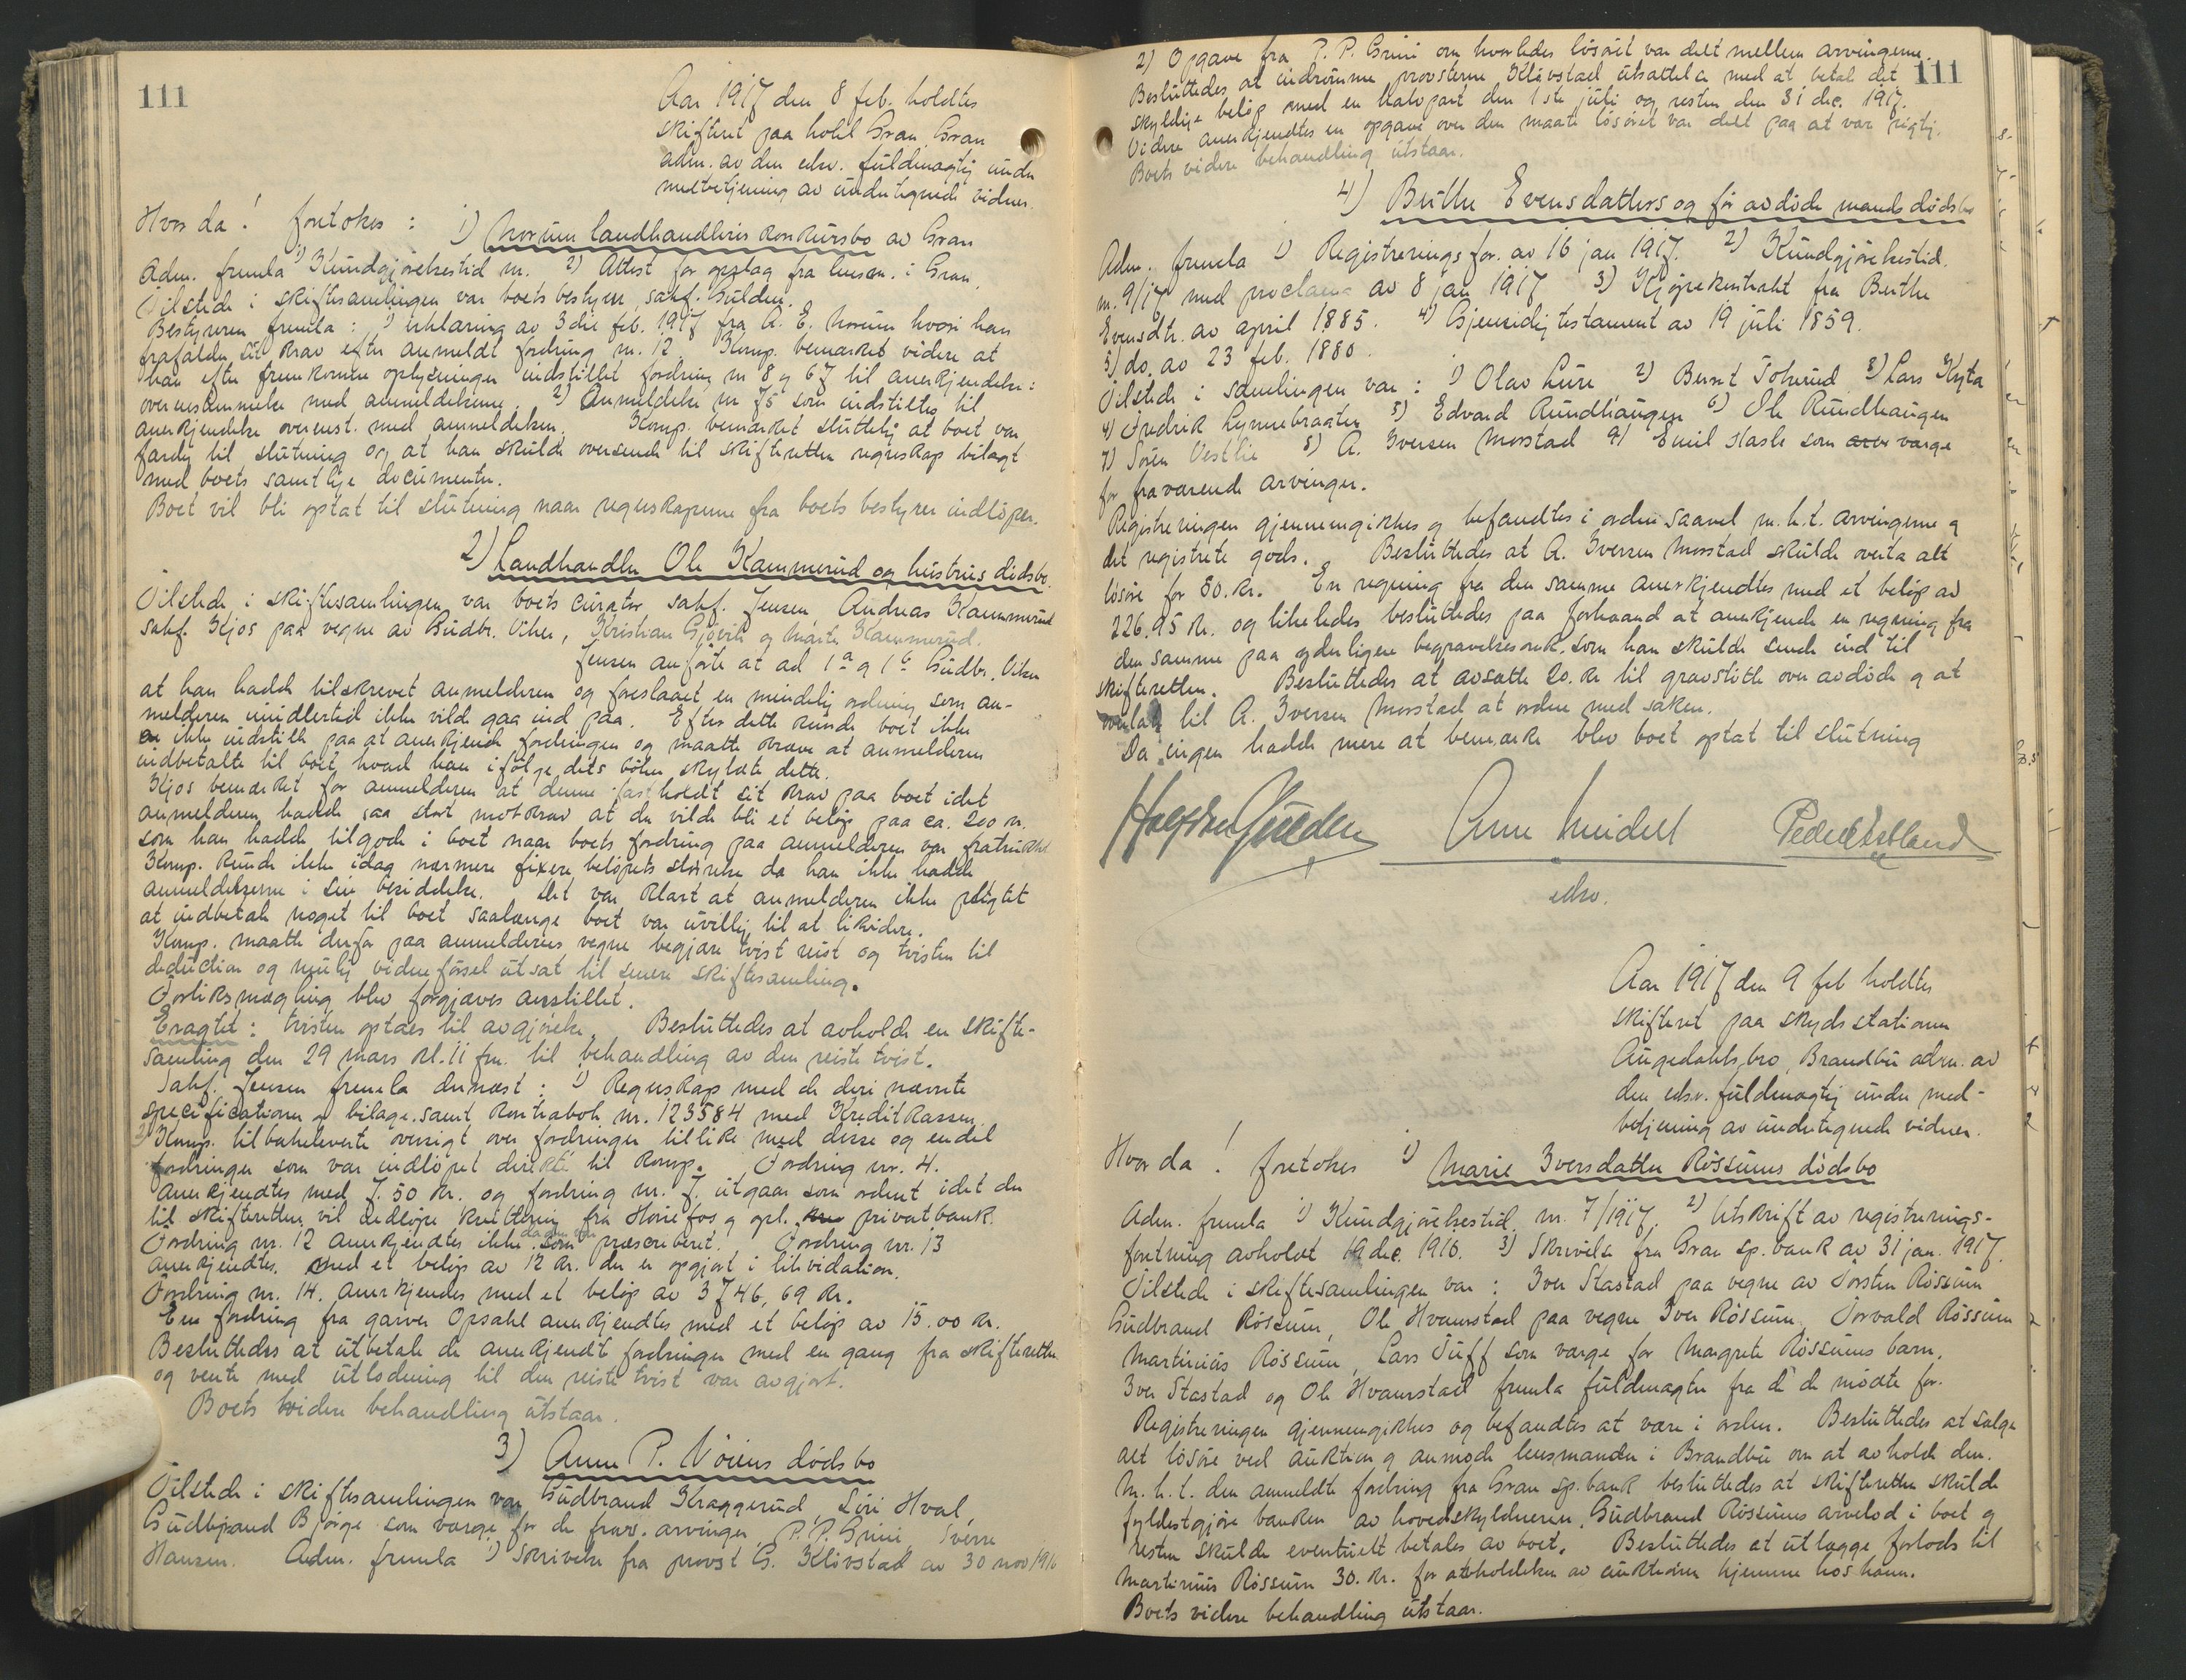 111
Aar 1917 den 8 feb. holdtes
skifteret paa hotel Gran, Gran
adm. av den edsv. fuldmægtig under
medbetjening av undertegnede vidner.
Hvor da! foretokes: 1) Morüm landhandleris konkursbo av Gran
Adm. fremla 1) Kundgjørelsestid nr. 2) Attest for opslag fra lensm. i Gran.
Tilstede i skiftesamlingen var boets bestyrer, sakf. Gulden.
Bestyreren fremla: 1) erklæring av 3die feb. 1917 fra A. E. Morüm hvori han
frafalder sit krav efter anmeldt fordring nr. 12. Komp. bemærket videre at
han efter fremkomne oplysninger indstillet fordring nr 8 og 67 til anerkjendelse i
overensstemmelse med anmeldelserne. 2) Anmeldelse nr 75 som indstilles til
anerkjendelse overenst. med anmeldelsen. Komp. bemærket sluttelig at boet var
færdig til slutning og at han skulde oversende til skifteretten regnskap bilagt
med boets samtlige documenter.
Boet vil bli optat til slutning naar regnskaperne fra boets bestyrer indløper.
2) Landhandler Ole Kammerud og hustrus dødsbo.
Tilstede i skiftesamlingen var boets curator, sakf. Jensen, Andreas Kammerud
sakf. Kjos paa vegne av Gudbr. Viken, Kristian Gjøvik og Marte Kammerud.
Jensen anførte at ad 1a og 1b Gudbr. Viken
at han hadde tilskrevet anmelderen og foreslaaet en mindelig ordning som an-
melderen imidlertid ikke vilde gaa ind paa. Efter dette kunde boet ikke
ikke indstille paa at anerkjende fordringen og maatte kræve at anmelderen
indbetalte til boet hvad han ifølge dets bøker skyldte dette.
Kjos bemærket for anmelderen at denne fastholdt sit krav paa boet idet
anmelderen hadde saa stort motkrav at der vilde bli et beløp paa ca. 200 kr.
som han hadde tilgode i boet naar boets fordring paa anmelderen var fratrukket
Komp. kunde ikke idag nærmere fixere beløpets størrelse da han ikke hadde
anmeldelserne i sin besiddelse. Det var klart at anmelderen ikke pligtet
at indbetale noget til boet saalænge boet var uvillig til at likvidere.
Komp. maatte derfor paa anmelderens vegne begjære tvist reist og tvisten til
deduction og mulig videreførsel utsat til senere skiftesamling.
Forliksmægling blev forgjæves anstillet.
Eragtet: tvisten optaes til avgjørelse. Besluttedes at avholde en skifte-
samling den 29 mars kl. 11 fm. til behandling av den reiste tvist.
Sakf. Jensen fremla dernæst: 1) Regnskap med de deri nævnte
specificationer og bilage samt kontrabok nr. 123584 med Kreditkassen.
2) Komp. tilbakeleverte oversigt over fordringer tillike med disse og endel
fordringer som var indløpet direkte til komp. Fordring nr. 4.
anerkjendtes med 7.50 kr. og fordring nr. 7. utgaar som ordnet idet der
til skifteretten vil indløpe kvittering fra Hønefos og opl. privatbank.
Fordring nr. 12 anerkjendtes ikke da den er præscriberet. Fordring nr. 13
anerkjendtes. med et beløp av 12 kr. der er opgjort i likvidation.
Fordring nr. 14. anerkjendes med et beløp av 3746,69 kr.
En fordring fra garver Opsahl anerkjendtes med et beløp av 15.00 kr.
Besluttedes at utbetale de anerkjendte fordringer med en gang fra skifteretten
og vente med utlodning til den reiste tvist var avgjort.
Boets videre behandling utstaar.
3) Anne P. Nøiens dødsbo
Tilstede i skiftesamlingen var Gudbrand Kraggerud, Siri Hval,
Gudbrand Bjørge som værge for de frav. arvinger, P. P. Grini, Sverre
Hansen. Adm. fremla 1) Skrivelse fra provst G. Kløvstad av 30 nov 1916
111
2) Opgave fra P. P. Grini om hvorledes løsøret var delt mellem arvingerne.
Besluttedes at indrømme provsterne Kløvstad utsættelse med at betale det
skyldige beløp med en halvpart den 1ste juli og resten den 31 dec. 1917.
Videre anerkjendtes en opgave over den maate løsøret var delt paa at var rigtig.
Boets videre behandling utstaar.
4) Berthe Evensdatters og før avdøde mands dødsbo
Adm. fremla 1) Registreringsfor. av 16 jan 1917. 2) Kundgjørelsestid.
nr. 9/17 med proclama av 8 jan 1917 3) Kjøpekontrakt fra Berthe
Evensdtr. av april 1885. 4) Gjensidig testament av 19 juli 1859.
5) do. av 23 feb. 1880.
Tilstede i samlingen var: 1) Olav Lure 2) Bernt Tokerud 3) Lars Kyta
4) Fredrik Lynnebraaten 5) Edvard Rundhaugen 6) Ole Rundhaugen
7) Søren Vestlie 8) A. Iversen Morstad 9) Emil Hasle som værge
for fraværende arvinger.
Registreringen gjennemgikkes og befandtes i orden saavel m.h.t. arvingerne og
det registrerte gods. Besluttedes at A. Iversen Morstad skulde overta alt
løsøre for 80. kr. En regning fra den samme anerkjendtes med et beløp av
226.95 kr. og likeledes besluttedes paa forhaand at anerkjende en regning fra
den samme paa yderligere begravelsesomk. som han skulde sende ind til
skifteretten. Besluttedes at avsætte 20. kr til gravstøtte over avdøde og at
overlate til A. Iversen Morstad at ordne med saken.
Da ingen hadde mere at bemærke blev boet optat til slutning
Halfdan Gulden Arne Meidell Peder Østland
edsv.
Aar 1917 den 9 feb holdtes
skifteret paa skydsstationen
Augedahls bro, Brandbu adm. av
den edsv. fuldmægtig under med-
betjening av undertegnede vidner.
Hvor da! foretokes 1) Marie Iversdatter Røssums dødsbo
Adm. fremla 1) Kundgjørelsestid. nr. 7/1917. 2) Utskrift av registrerings-
forretning avholdt 19 dec. 1916. 3) Skrivelse fra Gran sp.bank av 31 jan. 1917.
Tilstede i skiftesamlingen var: Iver Stastad paa vegne av Torsten Røssum
Gudbrand Røssum, Ole Hvamstad paa vegne Iver Røssum, Torvald Røssum
Martinius Røssum, Lars Tuff som værge for Margrete Røssums barn.
Iver Stastad og Ole Hvamstad fremla fuldmagter fra de de møtte for.
Registreringen gjennemgikkes og befandtes at være i orden. Besluttedes at sælge
alt løsøre ved auktion og anmode lensmanden i Brandbu om at avholde den.
M.h.t. den anmeldte fordring fra Gran sp.bank besluttedes at skifteretten skulde
fyldestgjøre banken av hovedskyldneren, Gudbrand Røssums arvelod i boet og
resten skulde eventuelt betales av boet. Besluttedes at utlægge forlods til
Martinius Røssum 30. kr. for avholdelsen av auktionen hjemme hos ham.
Boets videre behandling utstaar.